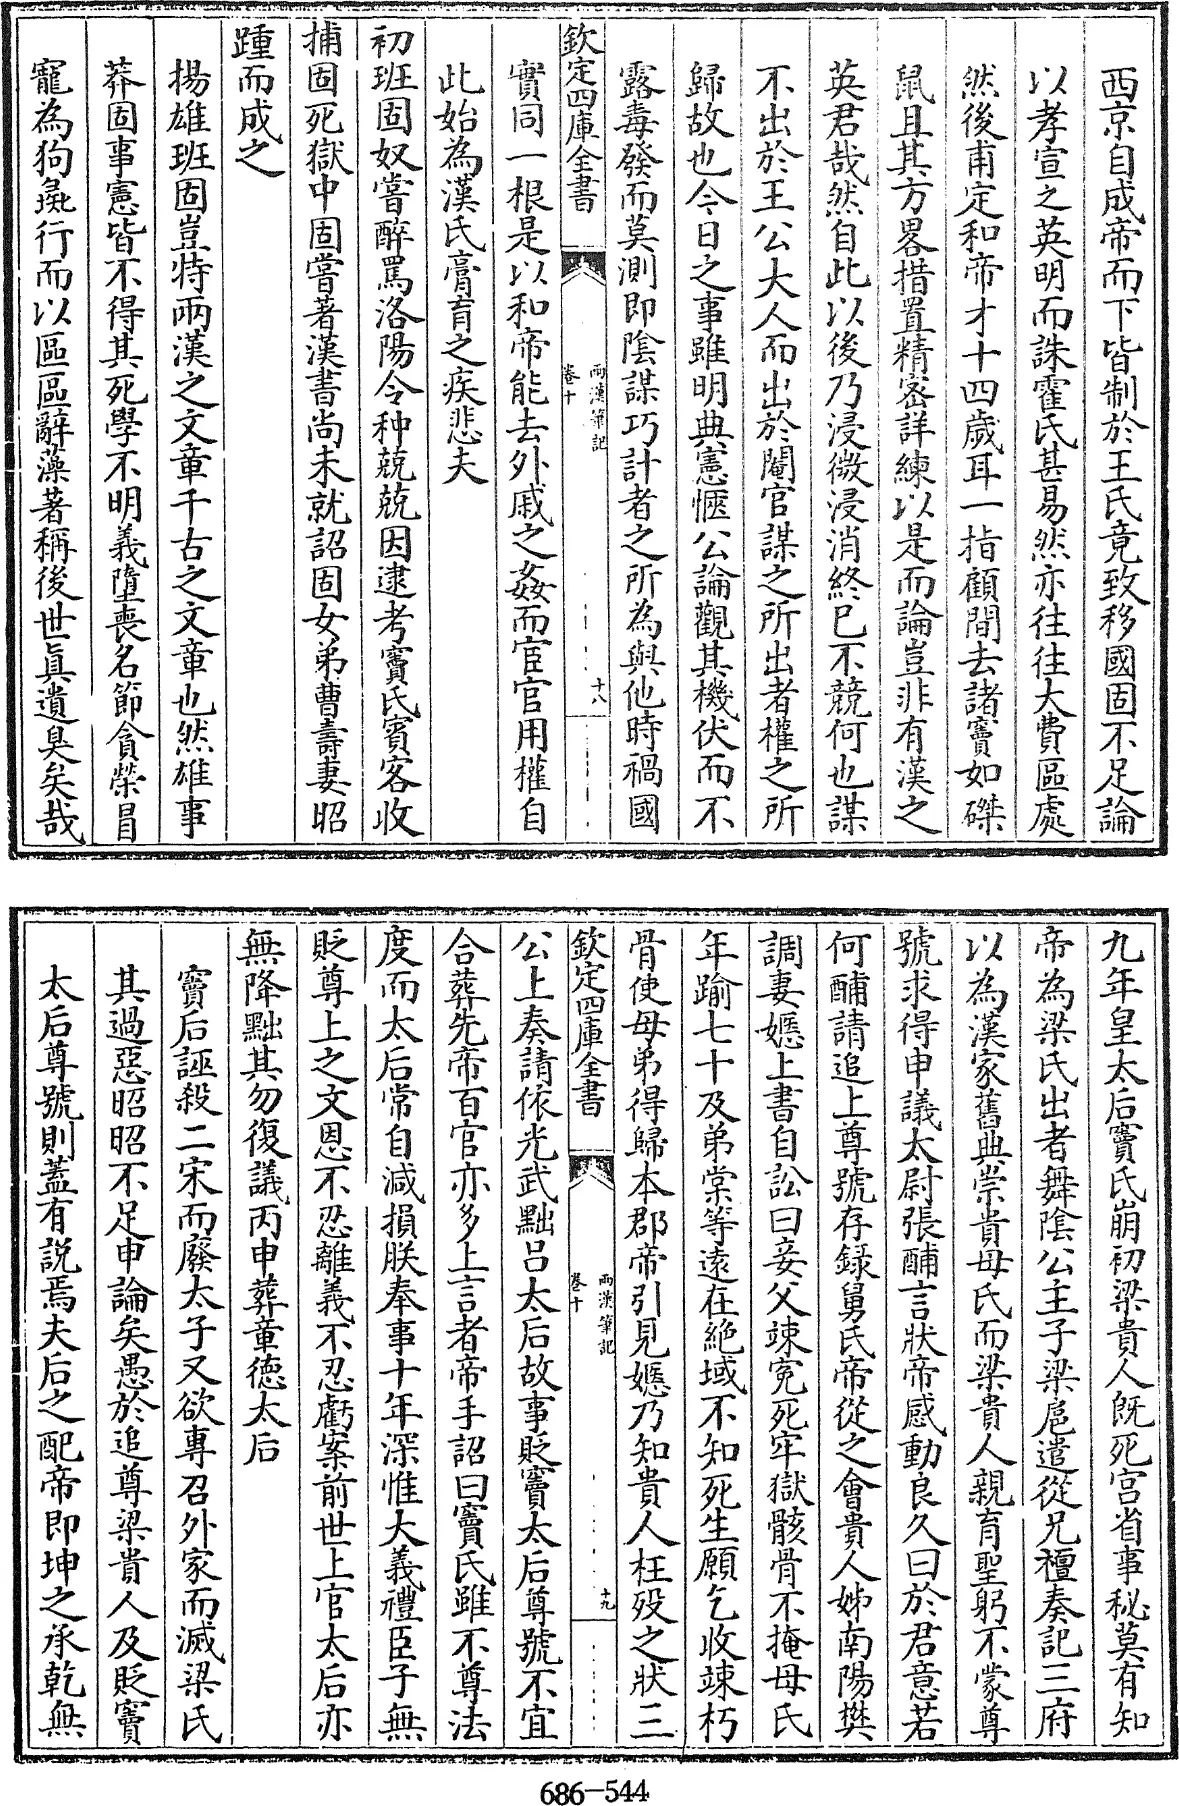 西京自成帝而下皆制於王氏竟致移國固不足論
以孝宣之英明而誅霍氏甚易然亦往往大費區處
然後甫定和帝才十四歲耳一指顧間去諸竇如磔
鼠且其方畧措置精密詳練以是而論豈非有漢之
英君哉然自此以後乃浸微浸消終已不競何也謀
不出於王公大人而出於閹官謀之所出者權之所
歸故也今日之事雖明典憲愜公論觀其機伏而不
露毒發而莫測即陰謀巧計者之所為與他時禍國
欽定四庫全書
兩漢筆記
卷十
十八
實同一根是以和帝能去外戚之姦而宦官用權自
此始為漢氏膏肓之疾悲夫
初班固奴嘗醉罵洛陽令种兢兢因逮考竇氏賓客收
捕固死獄中固嘗著漢書尚未就詔固女弟曹壽妻昭
踵而成之
揚雄班固豈特兩漢之文章千古之文章也然雄事
莽固事憲皆不得其死學不明義墮喪名節貪榮冒
寵為狗彘行而以區區辭藻著稱後世眞遺臭矣哉
九年皇太后竇氏崩初梁貴人既死宮省事秘莫有知
帝為梁氏出者舞陰公主子梁扈遣從兄檀奏記三府
以為漢家舊典崇貴母氏而梁貴人親育聖躬不蒙尊
號求得申議太尉張酺言狀帝感動良久曰於君意若
何酺請追上尊號存録舅氏帝從之會貴人姊南陽樊
調妻嫕上書自訟曰妾父竦冤死牢獄骸骨不掩母氏
年踰七十及弟棠等遠在絶域不知死生願乞收竦朽
骨使母弟得歸本郡帝引見嫕乃知貴人枉歿之狀三
欽定四庫全書
兩漢筆記
卷十
十九
公上奏請依光武黜呂太后故事貶竇太后尊號不宜
合葬先帝百官亦多上言者帝手詔曰竇氏雖不尊法
度而太后常自減損朕奉事十年深惟大義禮臣子無
貶尊上之文恩不忍離義不忍虧案前世上官太后亦
無降黜其勿復議丙申葬章德太后
竇后誣殺二宋而廢太子又欲專召外家而滅梁氏
其過惡昭昭不足申論矣愚於追尊梁貴人及貶竇
太后尊號則蓋有説焉夫后之配帝即坤之承乾無
686-544